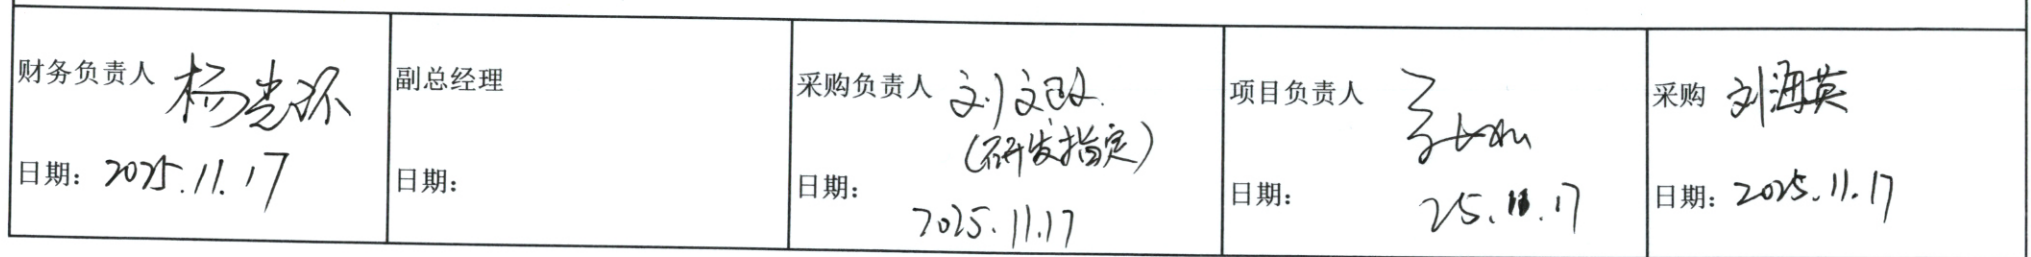 财务负责人 杨光环
日期: 2025.11.17
副总经理
日期:
采购负责人 刘文政
(研发指定)
日期:
2025.11.17
项目负责人
日期:
25.11.17
采购 刘海英
日期: 2025.11.17